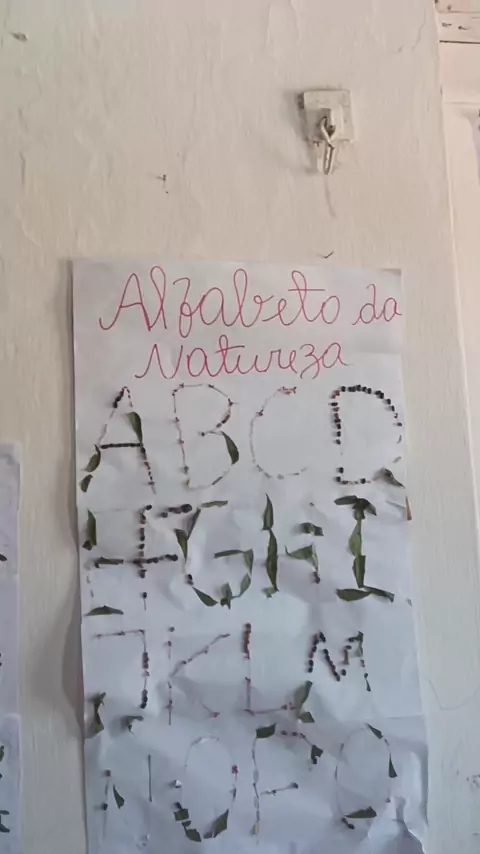 Alfabeto da
Natureza
A B C D
E F G H I
J K L M
N O P Q